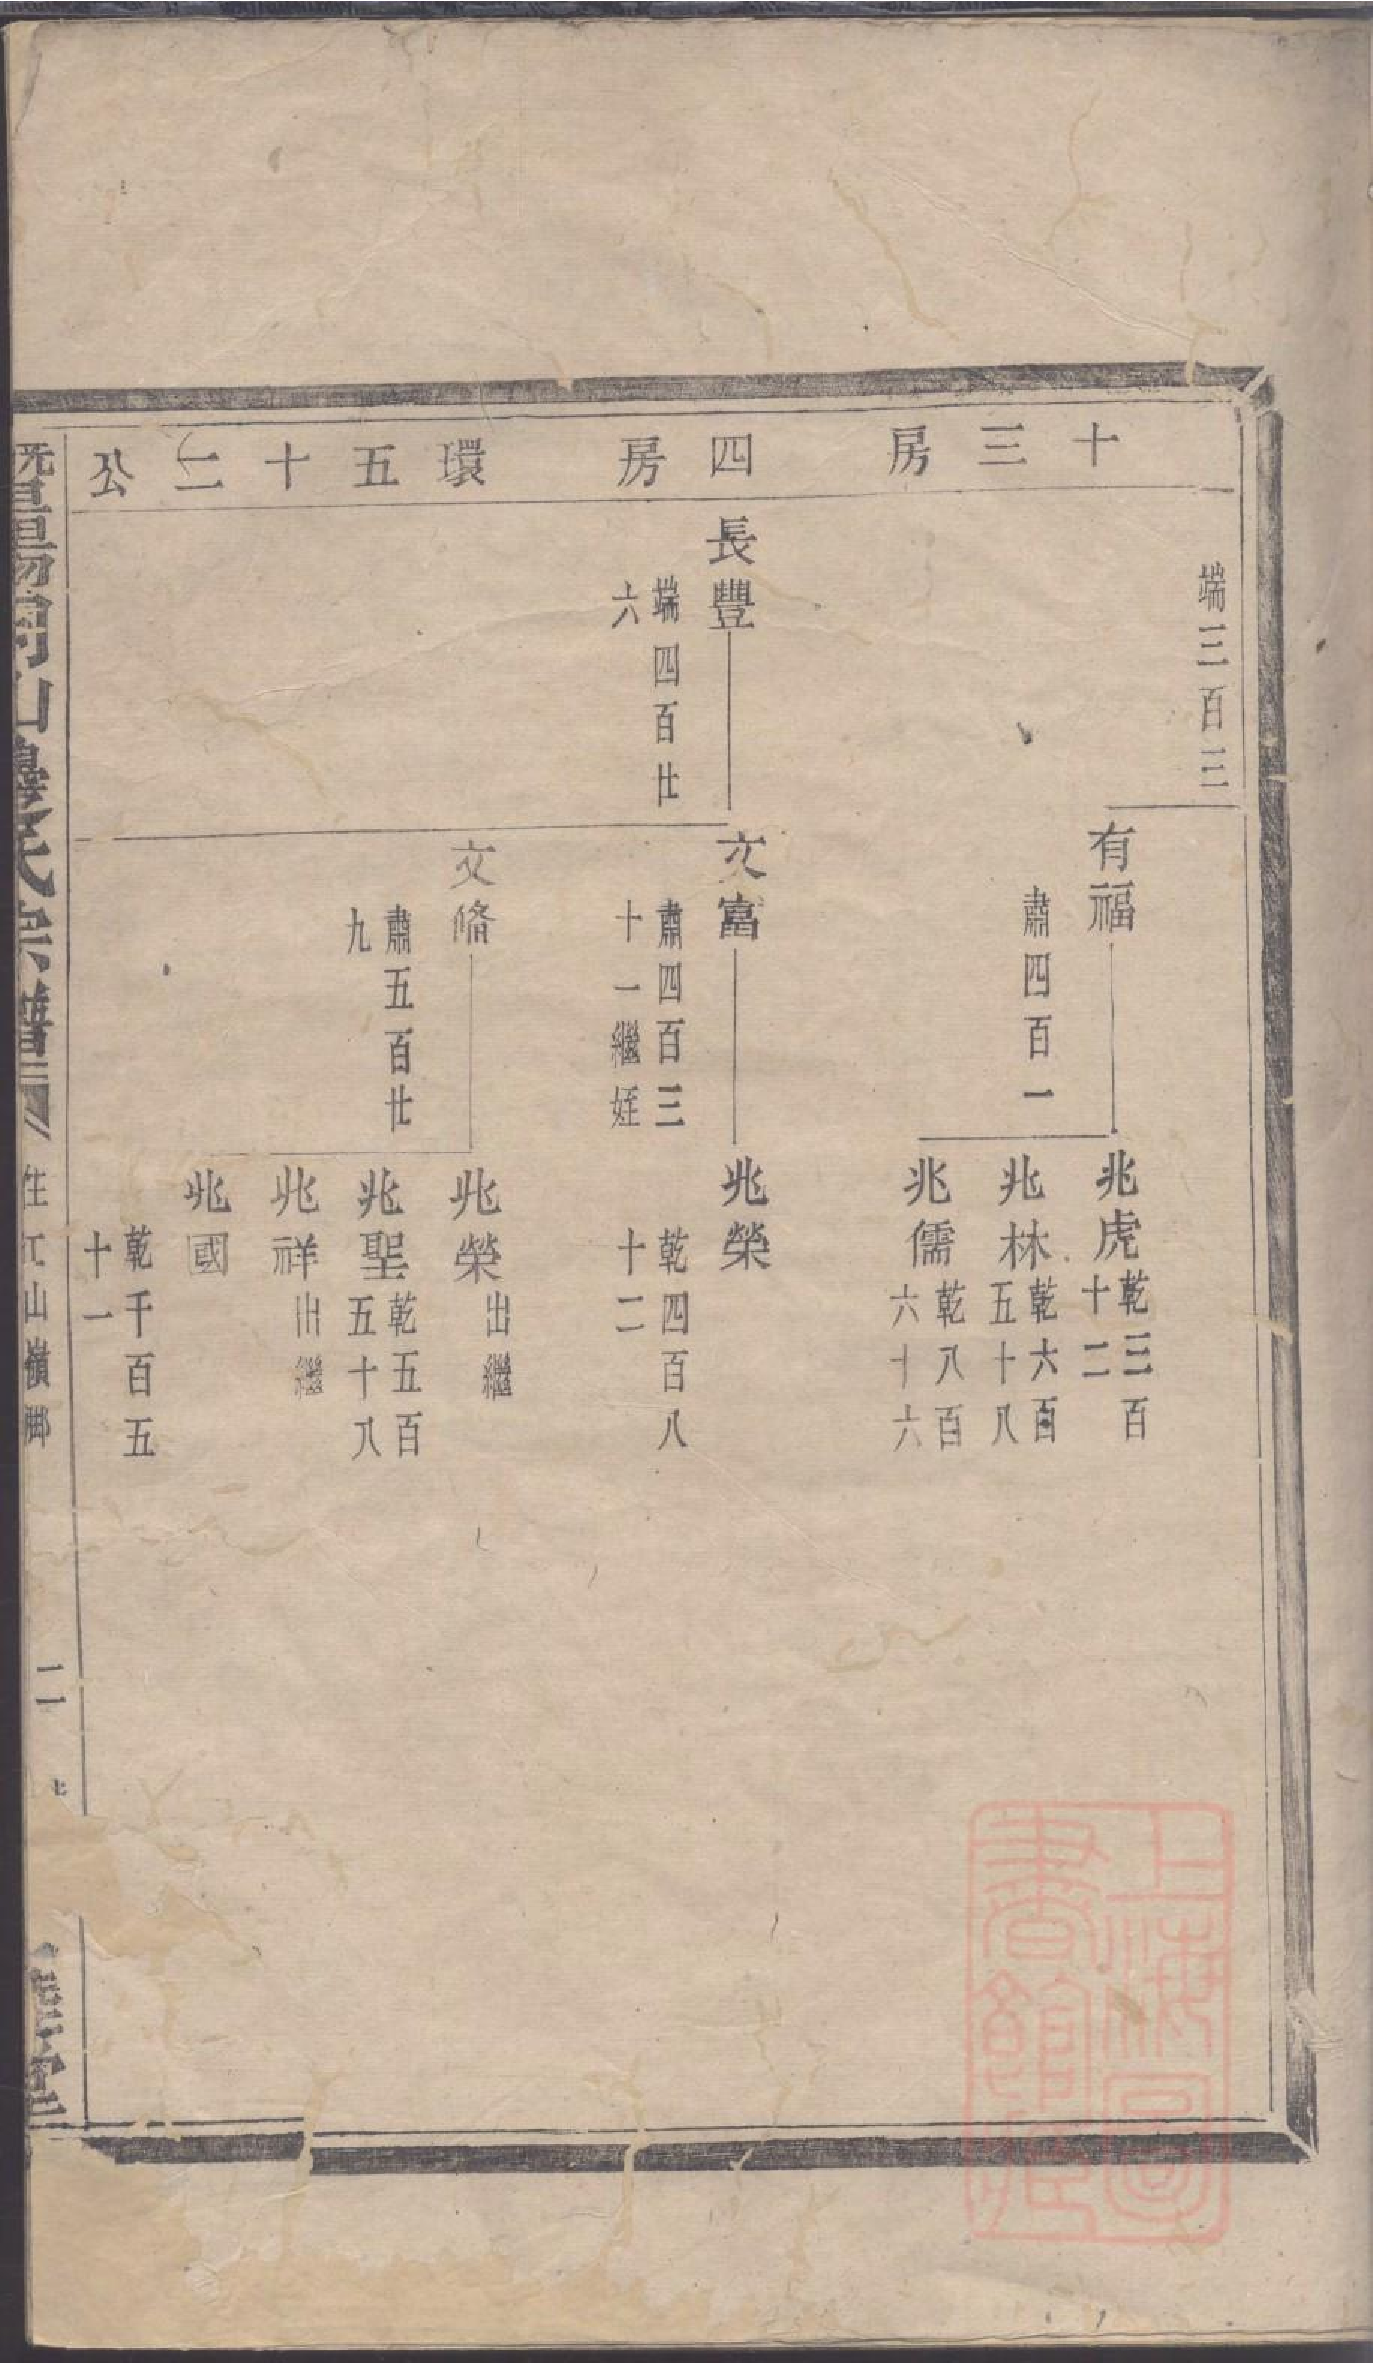 十三房
四房
環五十二公
端三百三
有福
肅四百一
兆虎
乾三百
十二
兆林
乾六百
五十八
兆儒
乾八百
六十六
長豐
端四百廿
六
文富
肅四百三
十一繼姪
兆榮
乾四百八
十二
文脩
肅五百廿
九
兆榮
出繼
兆聖
乾五百
五十八
兆祥
出繼
兆國
乾千百五
十一
暨陽同山邊氏宗譜
住江山嶺脚
二
堂
上海圖
書館藏